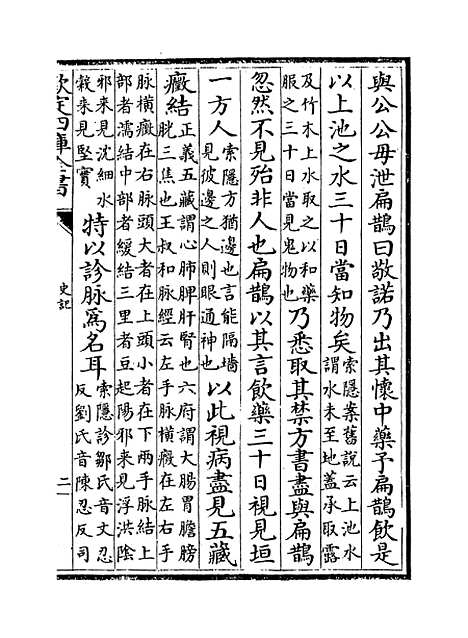 與公公毋泄扁鵲曰敬諾乃出其懷中藥予扁鵲飲是
以上池之水三十日當知物矣
索隱案舊說云上池水
謂水未至地蓋承取露
及竹木上水取之以和藥
服之三十日當見鬼物也
乃悉取其禁方書盡與扁鵲
忽然不見殆非人也扁鵲以其言飲藥三十日視見垣
一方人
索隱方猶邊也言能隔墻
見彼邊之人則眼通神也
以此視病盡見五藏
癥結
正義五藏謂心肺脾肝腎也六府謂大腸胃膽膀
胱三焦也王叔和脉經云左手脉橫癥在左右手
脉橫癥在右脉頭大者在上頭小者在下兩手脉結上
部者濡結中部者緩結三里者豆起陽邪来見浮洪陰
邪来見沈細水
穀来見堅實
特以診脉爲名耳
索隱診鄒氏音丈忍
反劉氏音陳忍反司
欽定四庫全書
史記
二